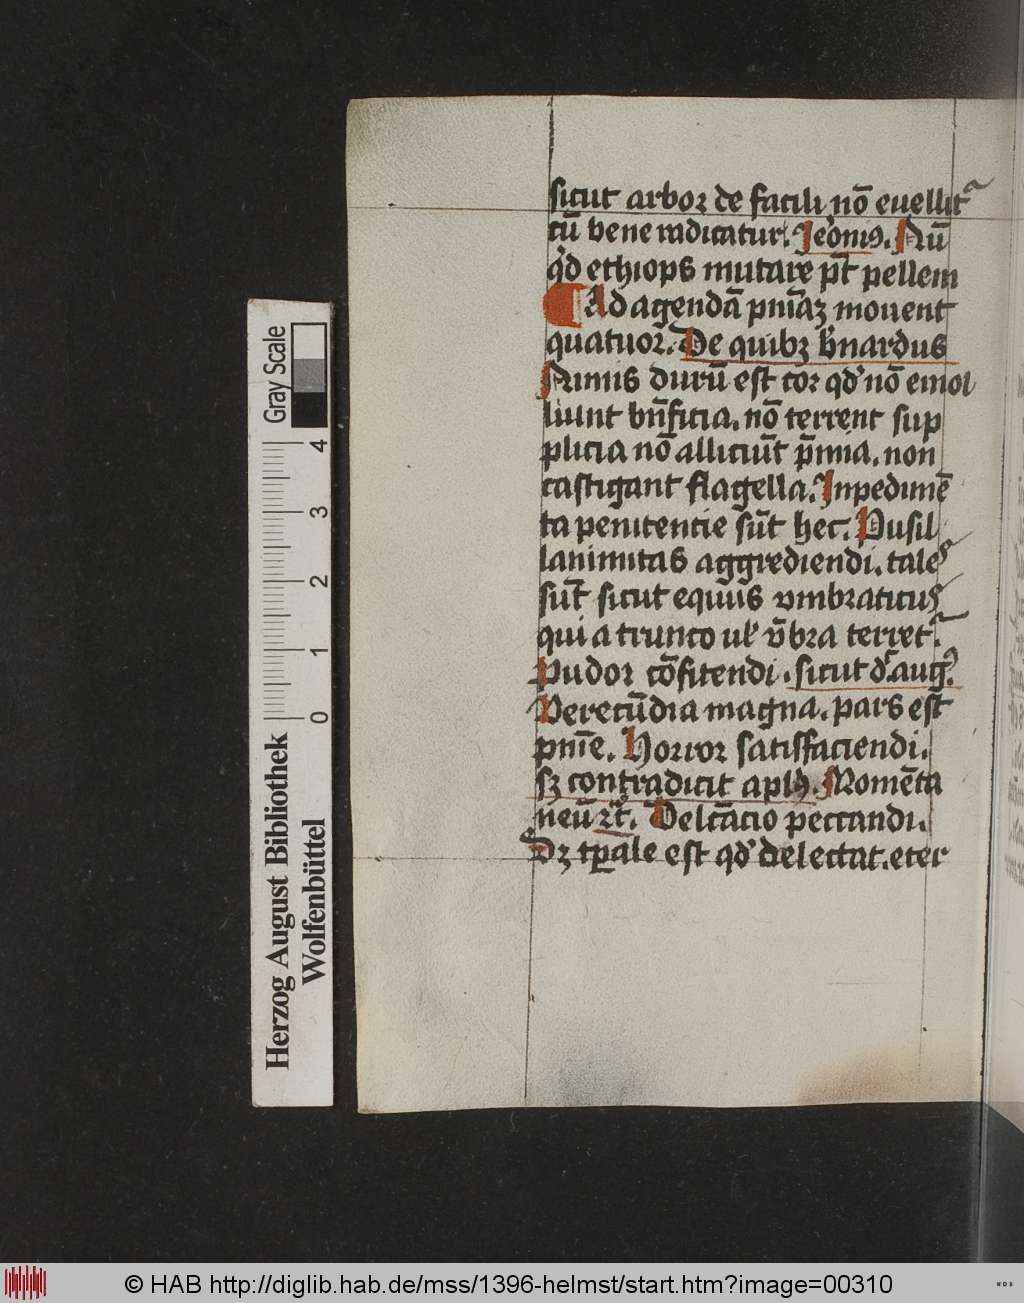 sicut arbor de facili nō euellit᷑
cū bene radicatur. Jeōniꝰ. Nū
qd ethiops mutare pt̄ pellem
¶ Ad agendā pn̄iaꝫ mouent
quatuor. De quibꝫ b̄nardus
Nimis durū est cor qđ nō emol
liunt bn̄ficia. nō terrent sup
plicia nō alliciūt p̄mia. non
castigant flagella. Inpedimē
ta penitentie sūt hec. Pusil
lanimitas aggrediendi. tales
sūt sicut equus vmbraticus
qui a trunco ul' v̄bra terret᷑.
Pudor cōfitendi. sicut đ. augꝰ.
Verecūdia magna. pars est
pn̄ie. Horror satisfaciendi.
sꝫ contradicit aplꝰ. Momēta
neū ⁊c̄. Delcācio peccandi.
Sꝫ tꝑale est qđ delectat. eter
Gray Scale
4
3
2
1
0
Herzog August Bibliothek
Wolfenbüttel
© HAB http://diglib.hab.de/mss/1396-helmst/start.htm?image=00310
WDB